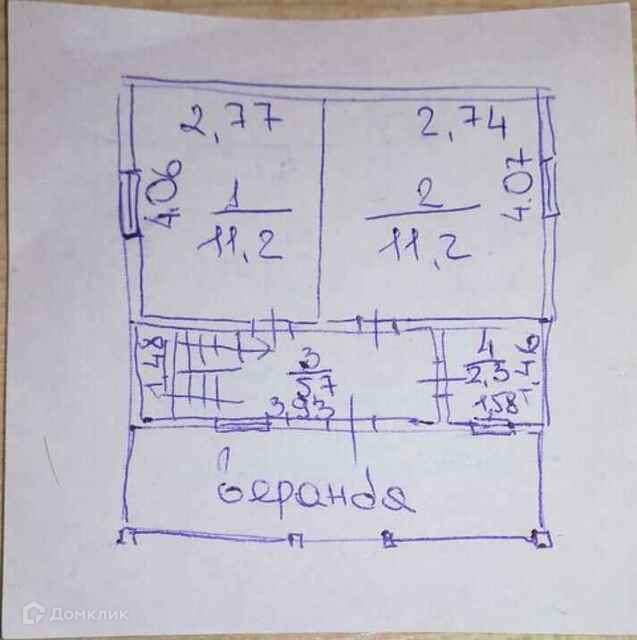 2,77
2,74
4.06
1
11,2
2
11,2
4.07
1.48
3
5,7
3,93
4
2,3
1,46
1,58
веранда
Домклик